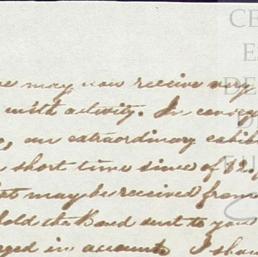 we may now receive very
with activity. In
, an extraordinary exhib
short time since of
may be received from
hold the Bond sent to you
ged in accounts I shou
CE
E
DE